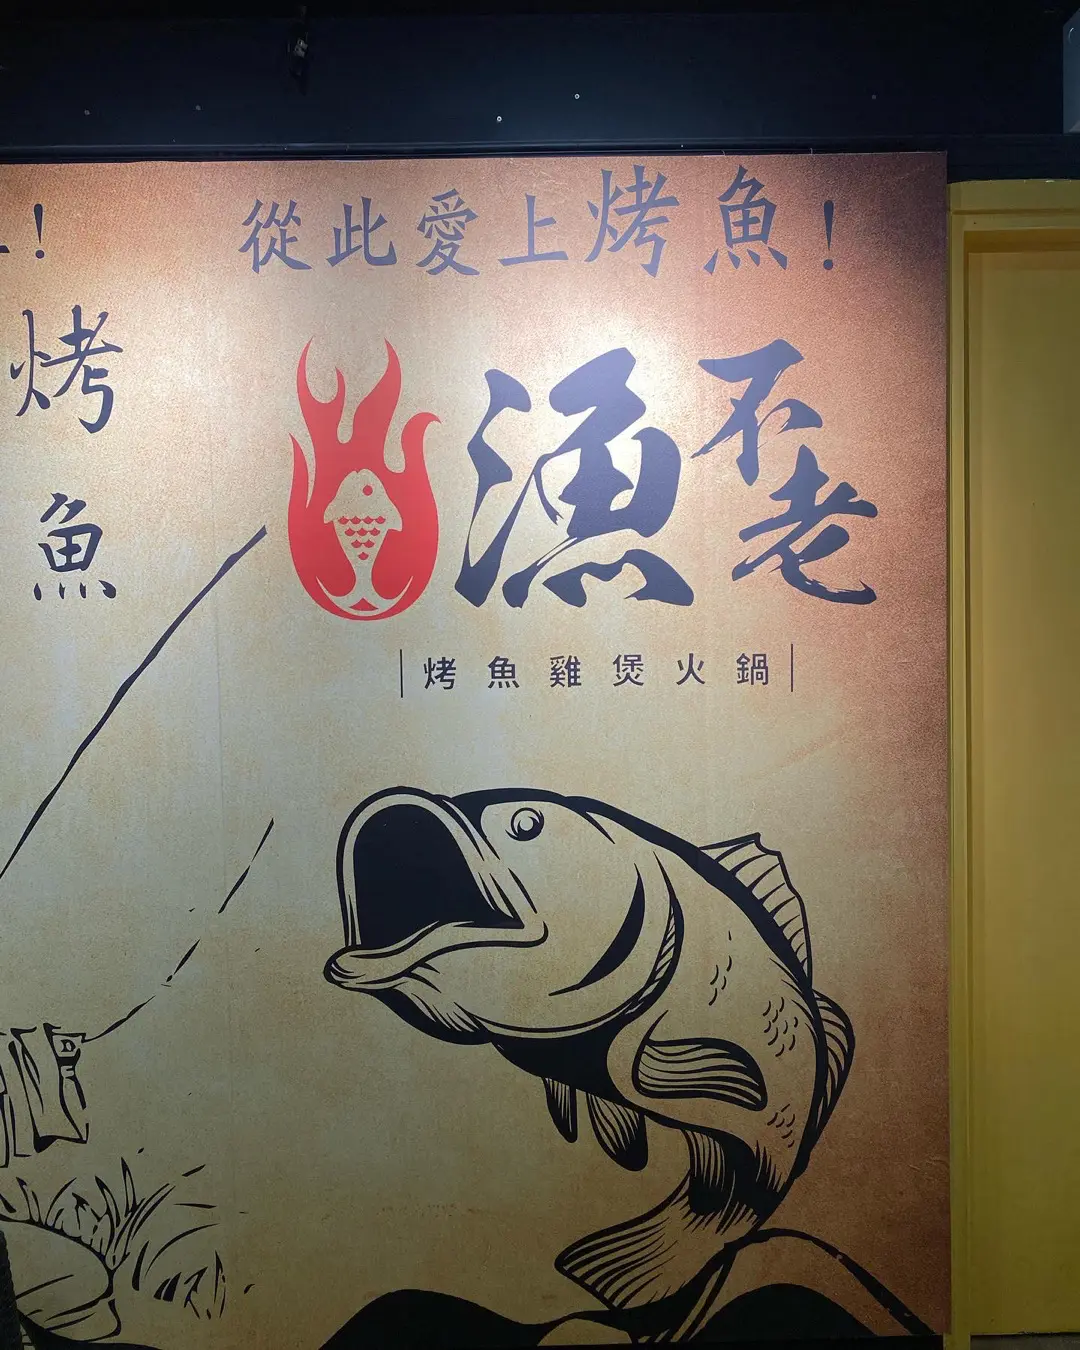 從此愛上烤魚！
漁不老
烤魚雞煲火鍋
！
烤
魚